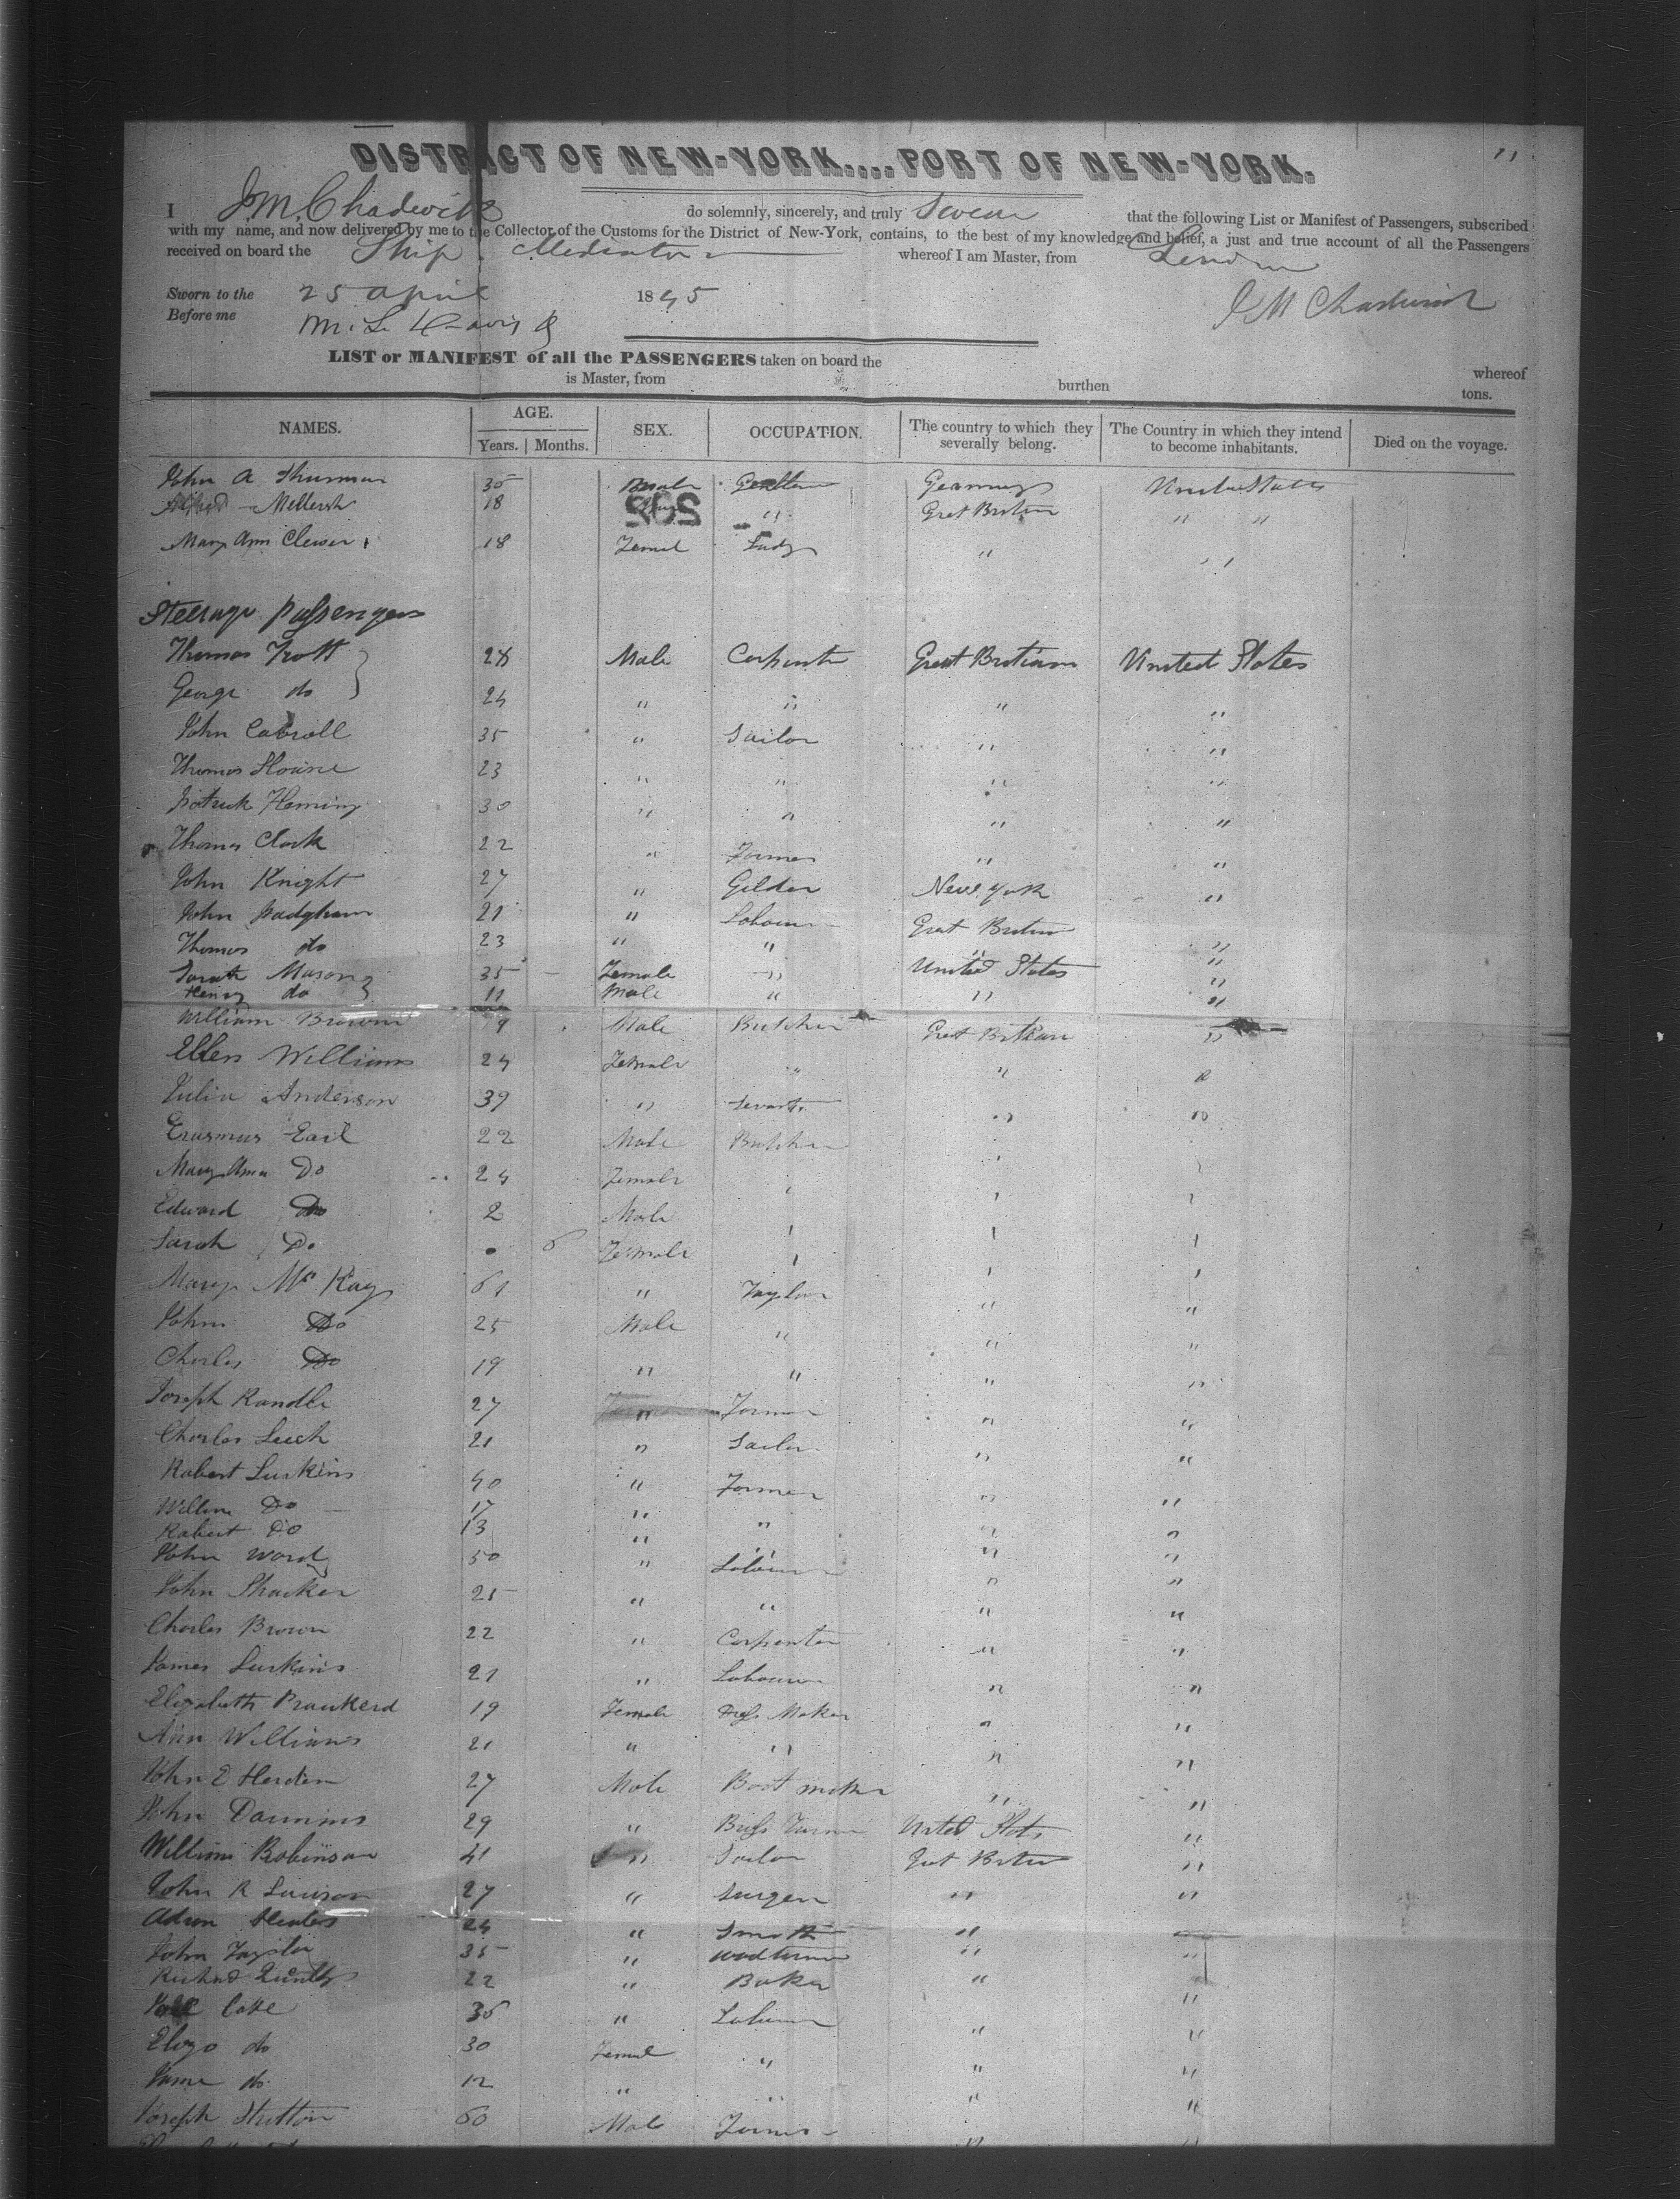 11
DISTRICT OF NEW-YORK....PORT OF NEW-YORK.
I J.M. Chadwick do solemnly, sincerely, and truly Swear that the following List or Manifest of Passengers, subscribed
with my name, and now delivered by me to the Collector of the Customs for the District of New-York, contains, to the best of my knowledge and belief, a just and true account of all the Passengers
received on board the Ship Mediator whereof I am Master, from London
Sworn to the 25 April 1845 J M Chadwick
Before me
LIST or MANIFEST of all the PASSENGERS taken on board the whereof
is Master, from burthen tons.
NAMES. AGE. Years. Months. SEX. OCCUPATION. The country to which they severally belong. The Country in which they intend to become inhabitants. Died on the voyage.
John A Thurman 35 Male Gentleman Germany United States
Mellersh 18 " Gret Britain " "
Mary Ann 18 Femal Lady " "
Steerage passengers
Thomas Trott 28 Male Carpenter Great Britain United States
George do 24 " " " "
John Carroll 35 " Sailor " "
Thomas Sloane 23 " " " "
Patrick Fleming 30 " " " "
Thomas Clark 22 " Farmer " "
John Knight 27 " Gilder New York "
John Padgham 21 " Labourer Great Britain "
Thomas do 23 " " " "
Sarah Mason 35 Female " United States "
Henry do 11 Male " " "
William Brown 9 Male Butcher Great Britain "
Ellen Williams 24 Female " " "
Julia Anderson 39 " Servant " "
Erasmus Earl 22 Male Butcher " "
Mary Ann Do 24 Female " " "
Edward Do 2 Male " " "
Sarah Do 6 Female " " "
Mary McKay 61 " Taylor " "
John Do 25 Male " " "
Charles Do 19 " " " "
Joseph Randle 27 " Farmer " "
Charles Leech 21 " Sailor " "
Robert Luskins 40 " Farmer " "
William Do 17 " " " "
Robert Do 13 " " " "
John Ward 50 " Labourer " "
John Shacker 25 " " " "
Charles Brown 22 " Carpenter " "
James Luskins 21 " Labourer " "
Elizabeth Braukerd 19 Female Dress Maker " "
Ann Williams 21 " " " "
John E Herdem 27 Male Boot maker " "
John 29 " Brass Turner United States "
William Robinson 41 " Sailor Great Britain "
John R Lawson 27 " Surgeon " "
24 " Smith " "
John Taylor 35 " Woodturner " "
Richard 22 " Baker " "
Cate 36 " Labourer " "
Eliza do 30 Femal " " "
Jane do 12 " " " "
Joseph Stretton 60 Male Farmer " "